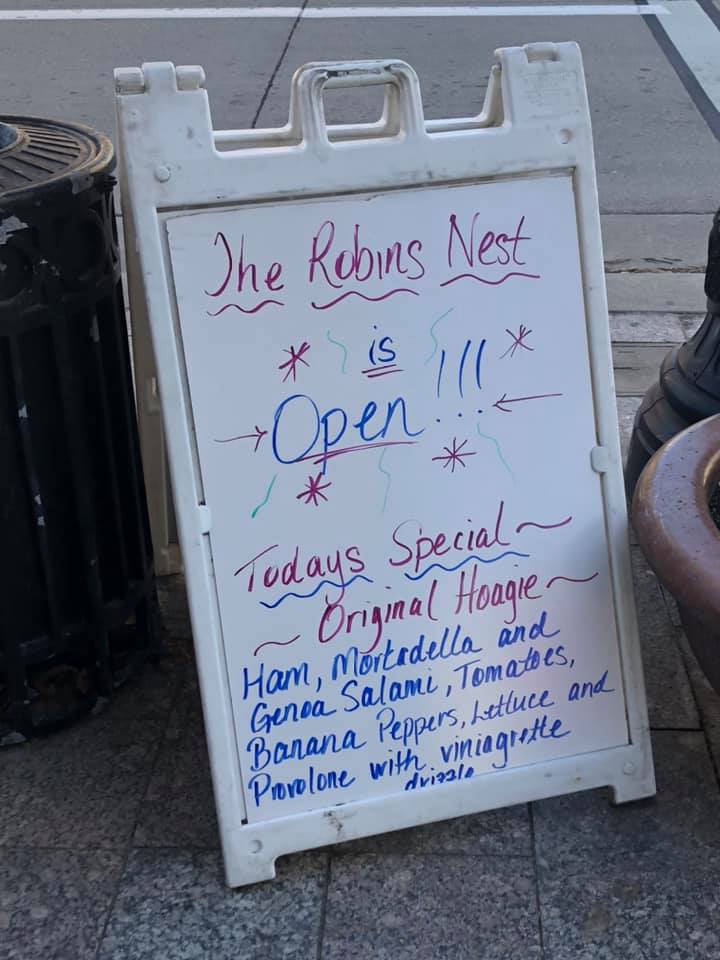 The Robins Nest
is
Open!!!
Todays Special~
~ Original Hoagie~
Ham, Mortadella and
Genoa Salami, Tomatoes,
Banana Peppers, Lettuce and
Provolone with viniagrette
drizzle